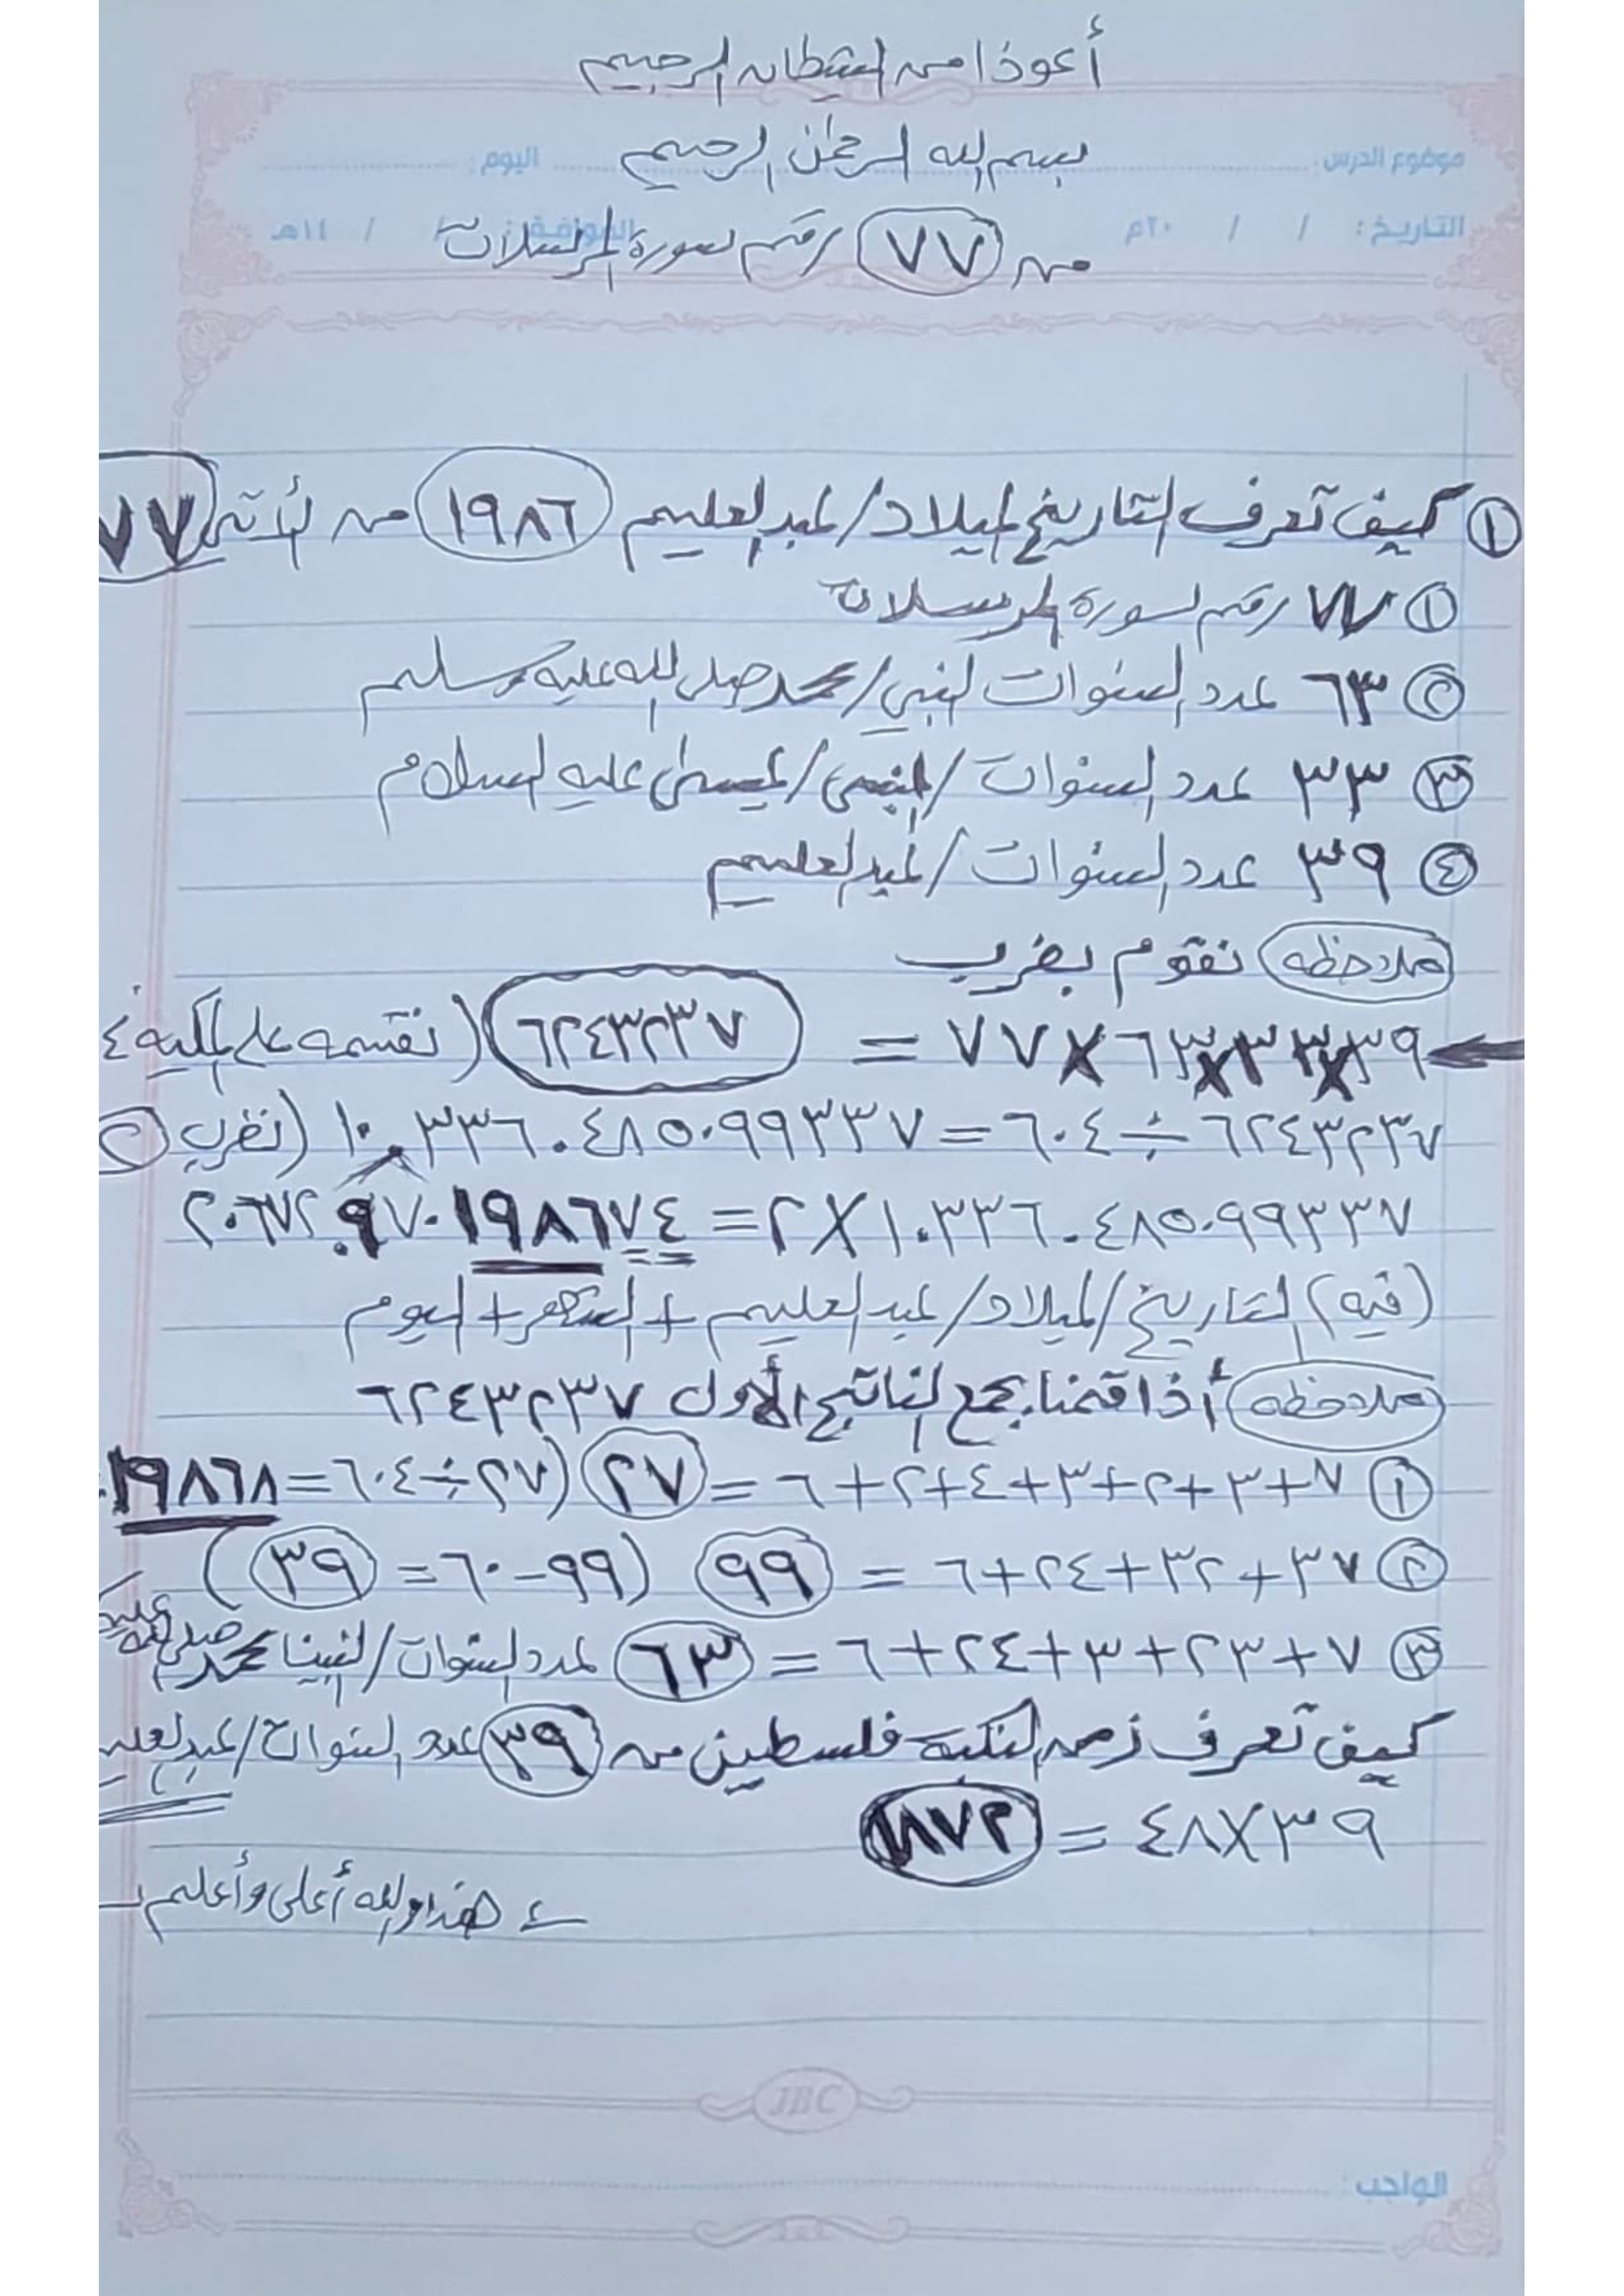 أعوذ من الشيطان الرجيم
بسم الله الرحمن الرحيم
موضوع الدرس : اليوم :
التاريخ : / / ٢٠م الموافق : / / ١٤هـ
من ٧٧ رقم سورة المرسلات
١ كيف تعرف التاريخ الميلاد/عبدالعليم ١٩٨٦ من الأية ٧٧
١ ٧٧ رقم سورة المرسلات
٢ ٦٣ عدد السنوات النبي/محمد صل الله عليه وسلم
٣ ٣٣ عدد السنوات/النبي/عيسى عليه السلام
٤ ٣٩ عدد السنوات/عبدالعليم
ملاحظه نقوم بضرب
٧٧×٦٣×٣٣×٣٩ = ٦٢٤٣٢٣٧ (نقسمه على ٤
٦٢٤٣٢٣٧÷٦٠٤=١٠.٣٣٦٠٤٨٥٠٩٩٣٣٧ (نضرب ٢
١٠٣٣٦٠٤٨٥٠٩٩٣٣٧×٢=٢٠٦٧٢.٩٧٠١٩٨٦٧٤
(فيه) التاريخ/الميلاد/عبدالعليم+الشهر+اليوم
ملاحظه أذا قمنا بجمع الناتج الأول ٦٢٤٣٢٣٧
١ ٧+٣+٢+٣+٤+٢+٦=٢٧ (٢٧÷٦٠٤=١٩٨٦٨
٢ ٣٧+٣٢+٢٤+٦ = ٩٩ (٩٩-٦٠=٣٩)
٣ ٧+٢٣+٣+٢٤+٦ = ٦٣ عدد السنوات/نبينا محمد صل الله عليه
كيف تعرف زمن النكبة فلسطين من ٣٩ عدد السنوات/عبدالعليم
٣٩×٤٨ = ١٨٧٢
هذا والله أعلى وأعلم
JBC
الواجب :